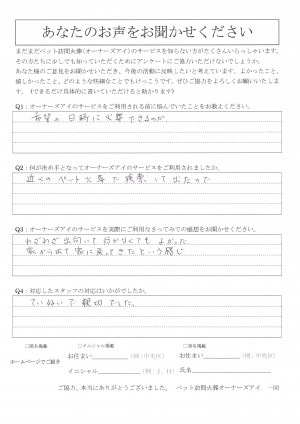 あなたのお声をお聞かせください
まだまだペット訪問火葬(オーナーズアイ)のサービスを知らない方がたくさんいらっしゃいます。
その方たちに少しでも知っていただくためにアンケートにご協力いただけないでしょうか。
あなた様のご意見をお聞かせいただき、今後の活動に反映したいと考えています。よかったこと、
嬉しかったこと。どのような些細なことでもけっこうです。ぜひ協力をよろしくお願いいたします。(できるだけ具体的に書いていただけると助かります)
Q1:オーナーズアイのサービスをご利用される前に悩んでいたことをお教えください。
希望の日時に火葬できるのか、
Q2:何が決め手となってオーナーズアイのサービスをご利用されましたか。
近くのペット火葬で検索して出たので
Q3:オーナーズアイのサービスを実際にご利用なさってみての感想をお聞かせください。
わざわざ出向いて行かなくてもよかった
家から出て家に戻ってきたという感じ
Q4:対応したスタッフの対応はいかがでしたか。
ていねいで親切でした。
ホームページでご紹介
□匿名掲載 □イニシャル掲載 □実名掲載
お住まい (例:中央区) お住まい (例:中央区)
イニシャル (例:J.H) 氏名
ご協力、本当にありがとうございました。 ペット訪問火葬オーナーズアイ 一同